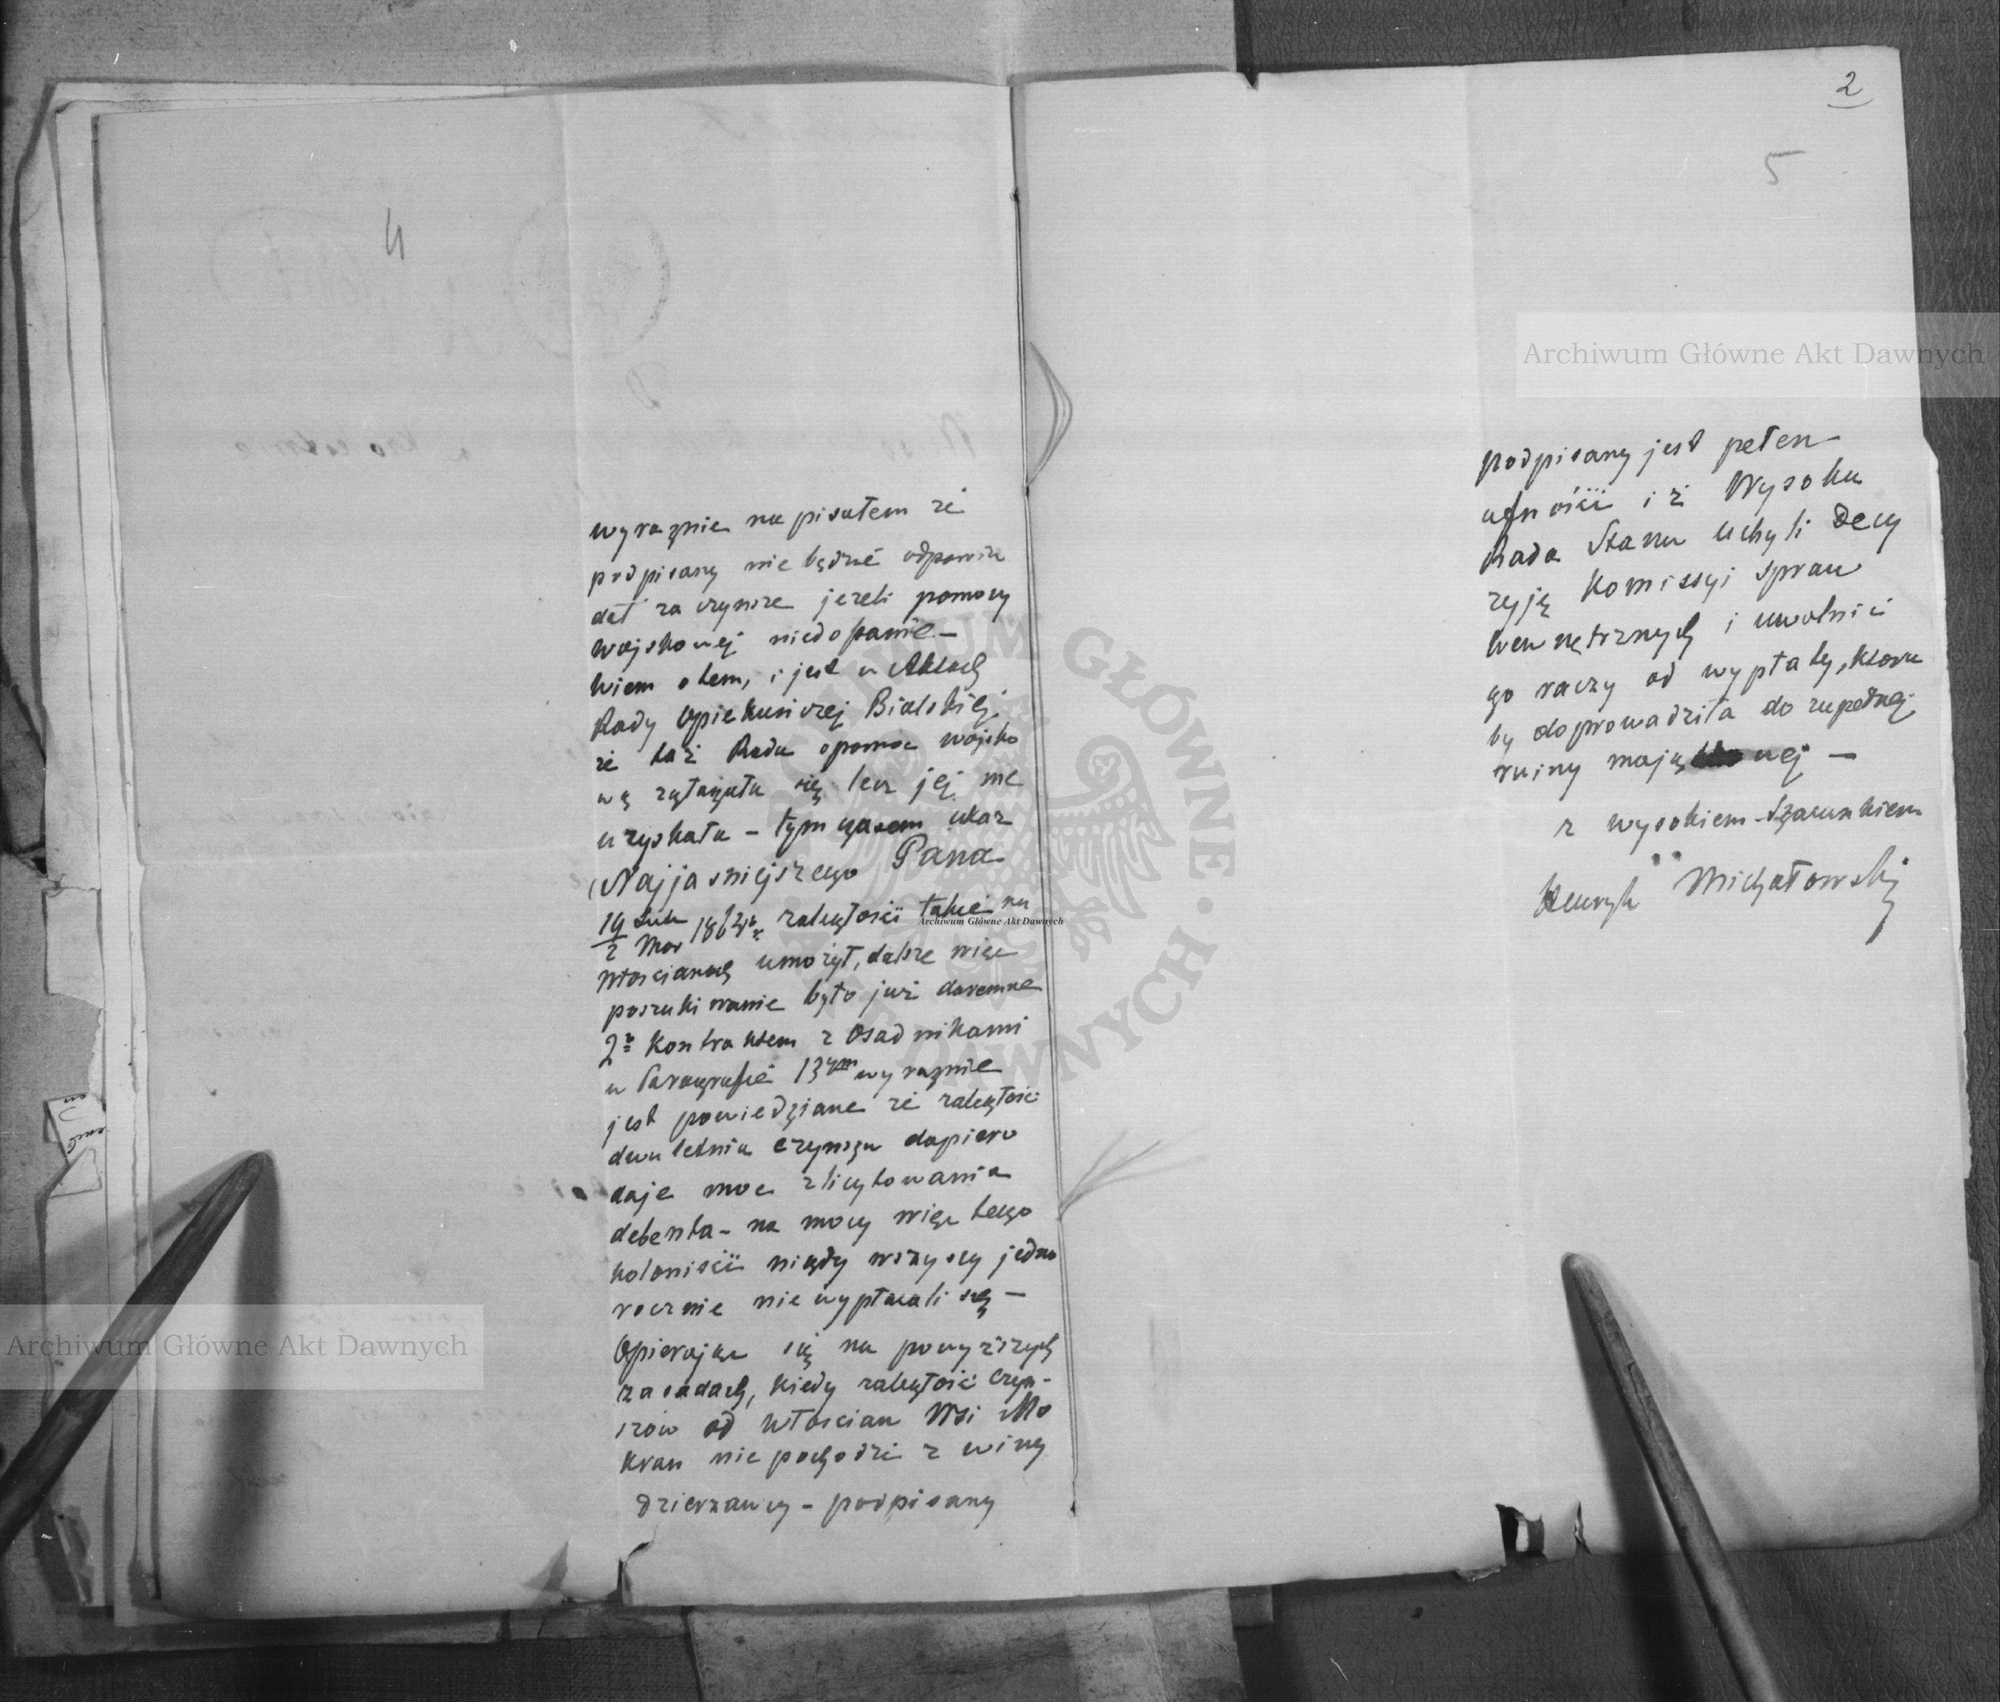 4
wyraznie napisałem że
podpisany nie będzie odpowia
dał za czynsze jeżeli pomocy
wojskowej niedostanie –
wiem o tem, i jest w Aktach
Rady Opiekuńczej Bialskiej
że taż Rada o pomoc wojsko
wą zgłaszała się lecz jej nie
uzyskała – tymczasem ukaz
Najjasniejszego Pana
19 Lut
2 Mar 1864 r. zaległości takie na
Włoscianach umożył, dalsze więc
poszukiwanie było już daremne
2º Kontraktem z Osadnikami
w Paragrafie 13ym wyraznie
jest powiedziane że zaległość
dwuletnia czynszu dopiero
daje moc zlicytowania
debenta – na mocy więc tego
koloniści nigdy wszyscy jedno
rocznie nie wypłacali się –
Opierając się na powyższych
zasadach, kiedy zaległość czyn-
szów od Włoscian Wsi Mo
kran nie pochodzi z winy
dzierzawcy – podpisany
2
5
podpisany jest pełen
ufności iż Wysoka
Rada Stanu Uchyli Decy
zyję Komissyi Spraw
Wewnętrznych i uwolnić
go raczy od wypłaty, która
by doprowadziła do zupełnej
ruiny mają nej –
z wysokiem Szacunkiem
Henryk Michałowski
Archiwum Główne Akt Dawnych
Archiwum Główne Akt Dawnych
Archiwum Główne Akt Dawnych
ARCHIWUM GŁÓWNE AKT DAWNYCH